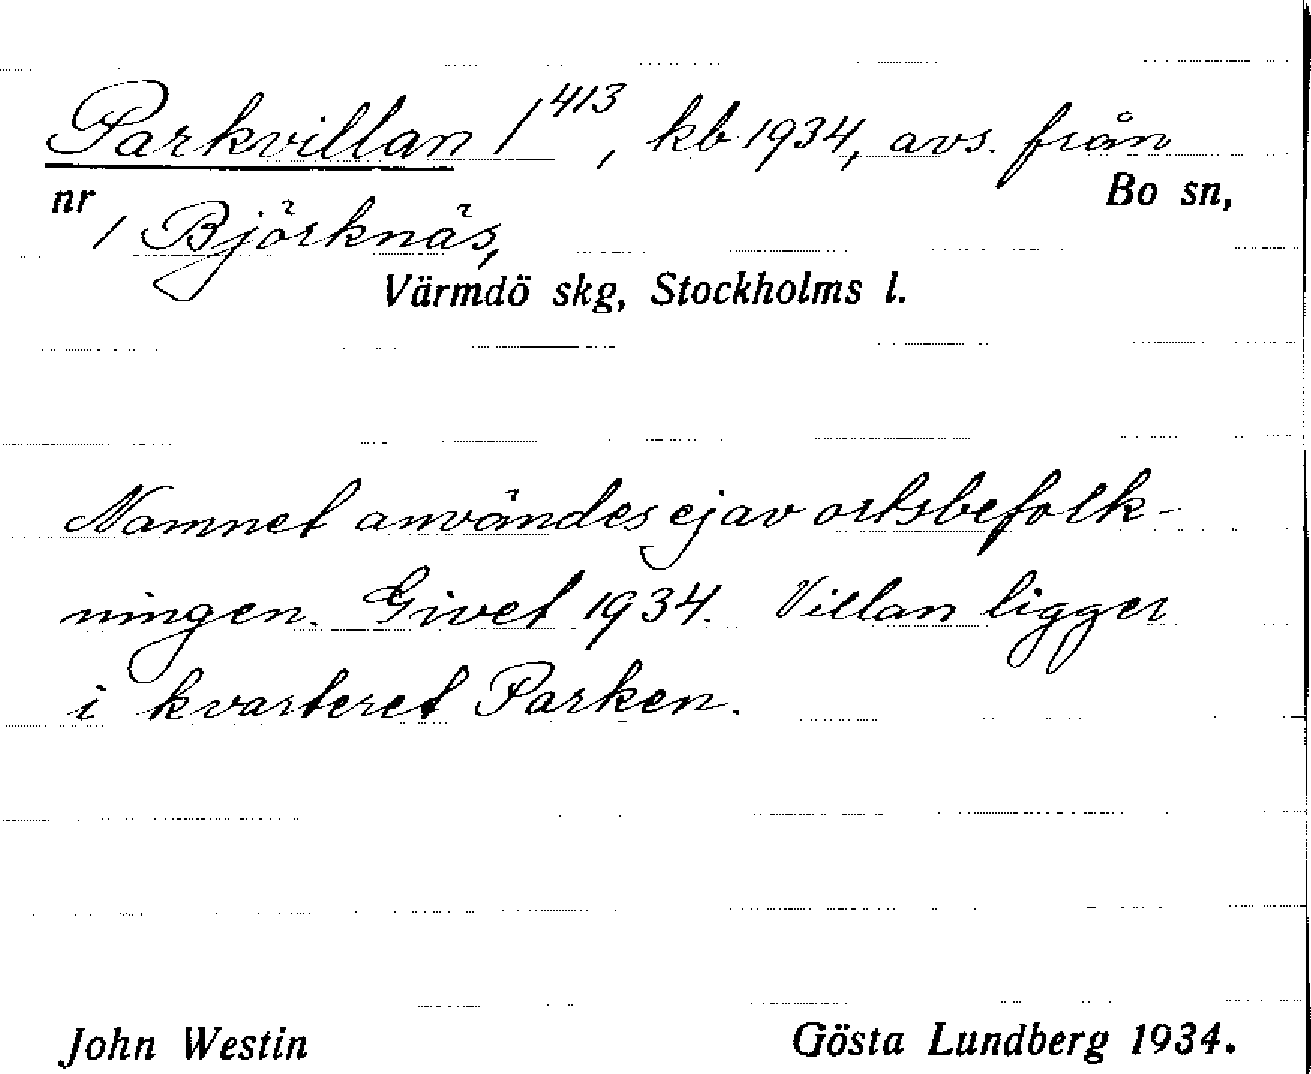 Parkvillan 1⁴¹³, kb 1934, avs. från
nr 1 Björknäs, Bo sn,
Värmdö skg, Stockholms l.
Namnet användes ej av ortsbefolk-
ningen. Givet 1934. Villan ligger
i kvarteret Parken.
John Westin Gösta Lundberg 1934.